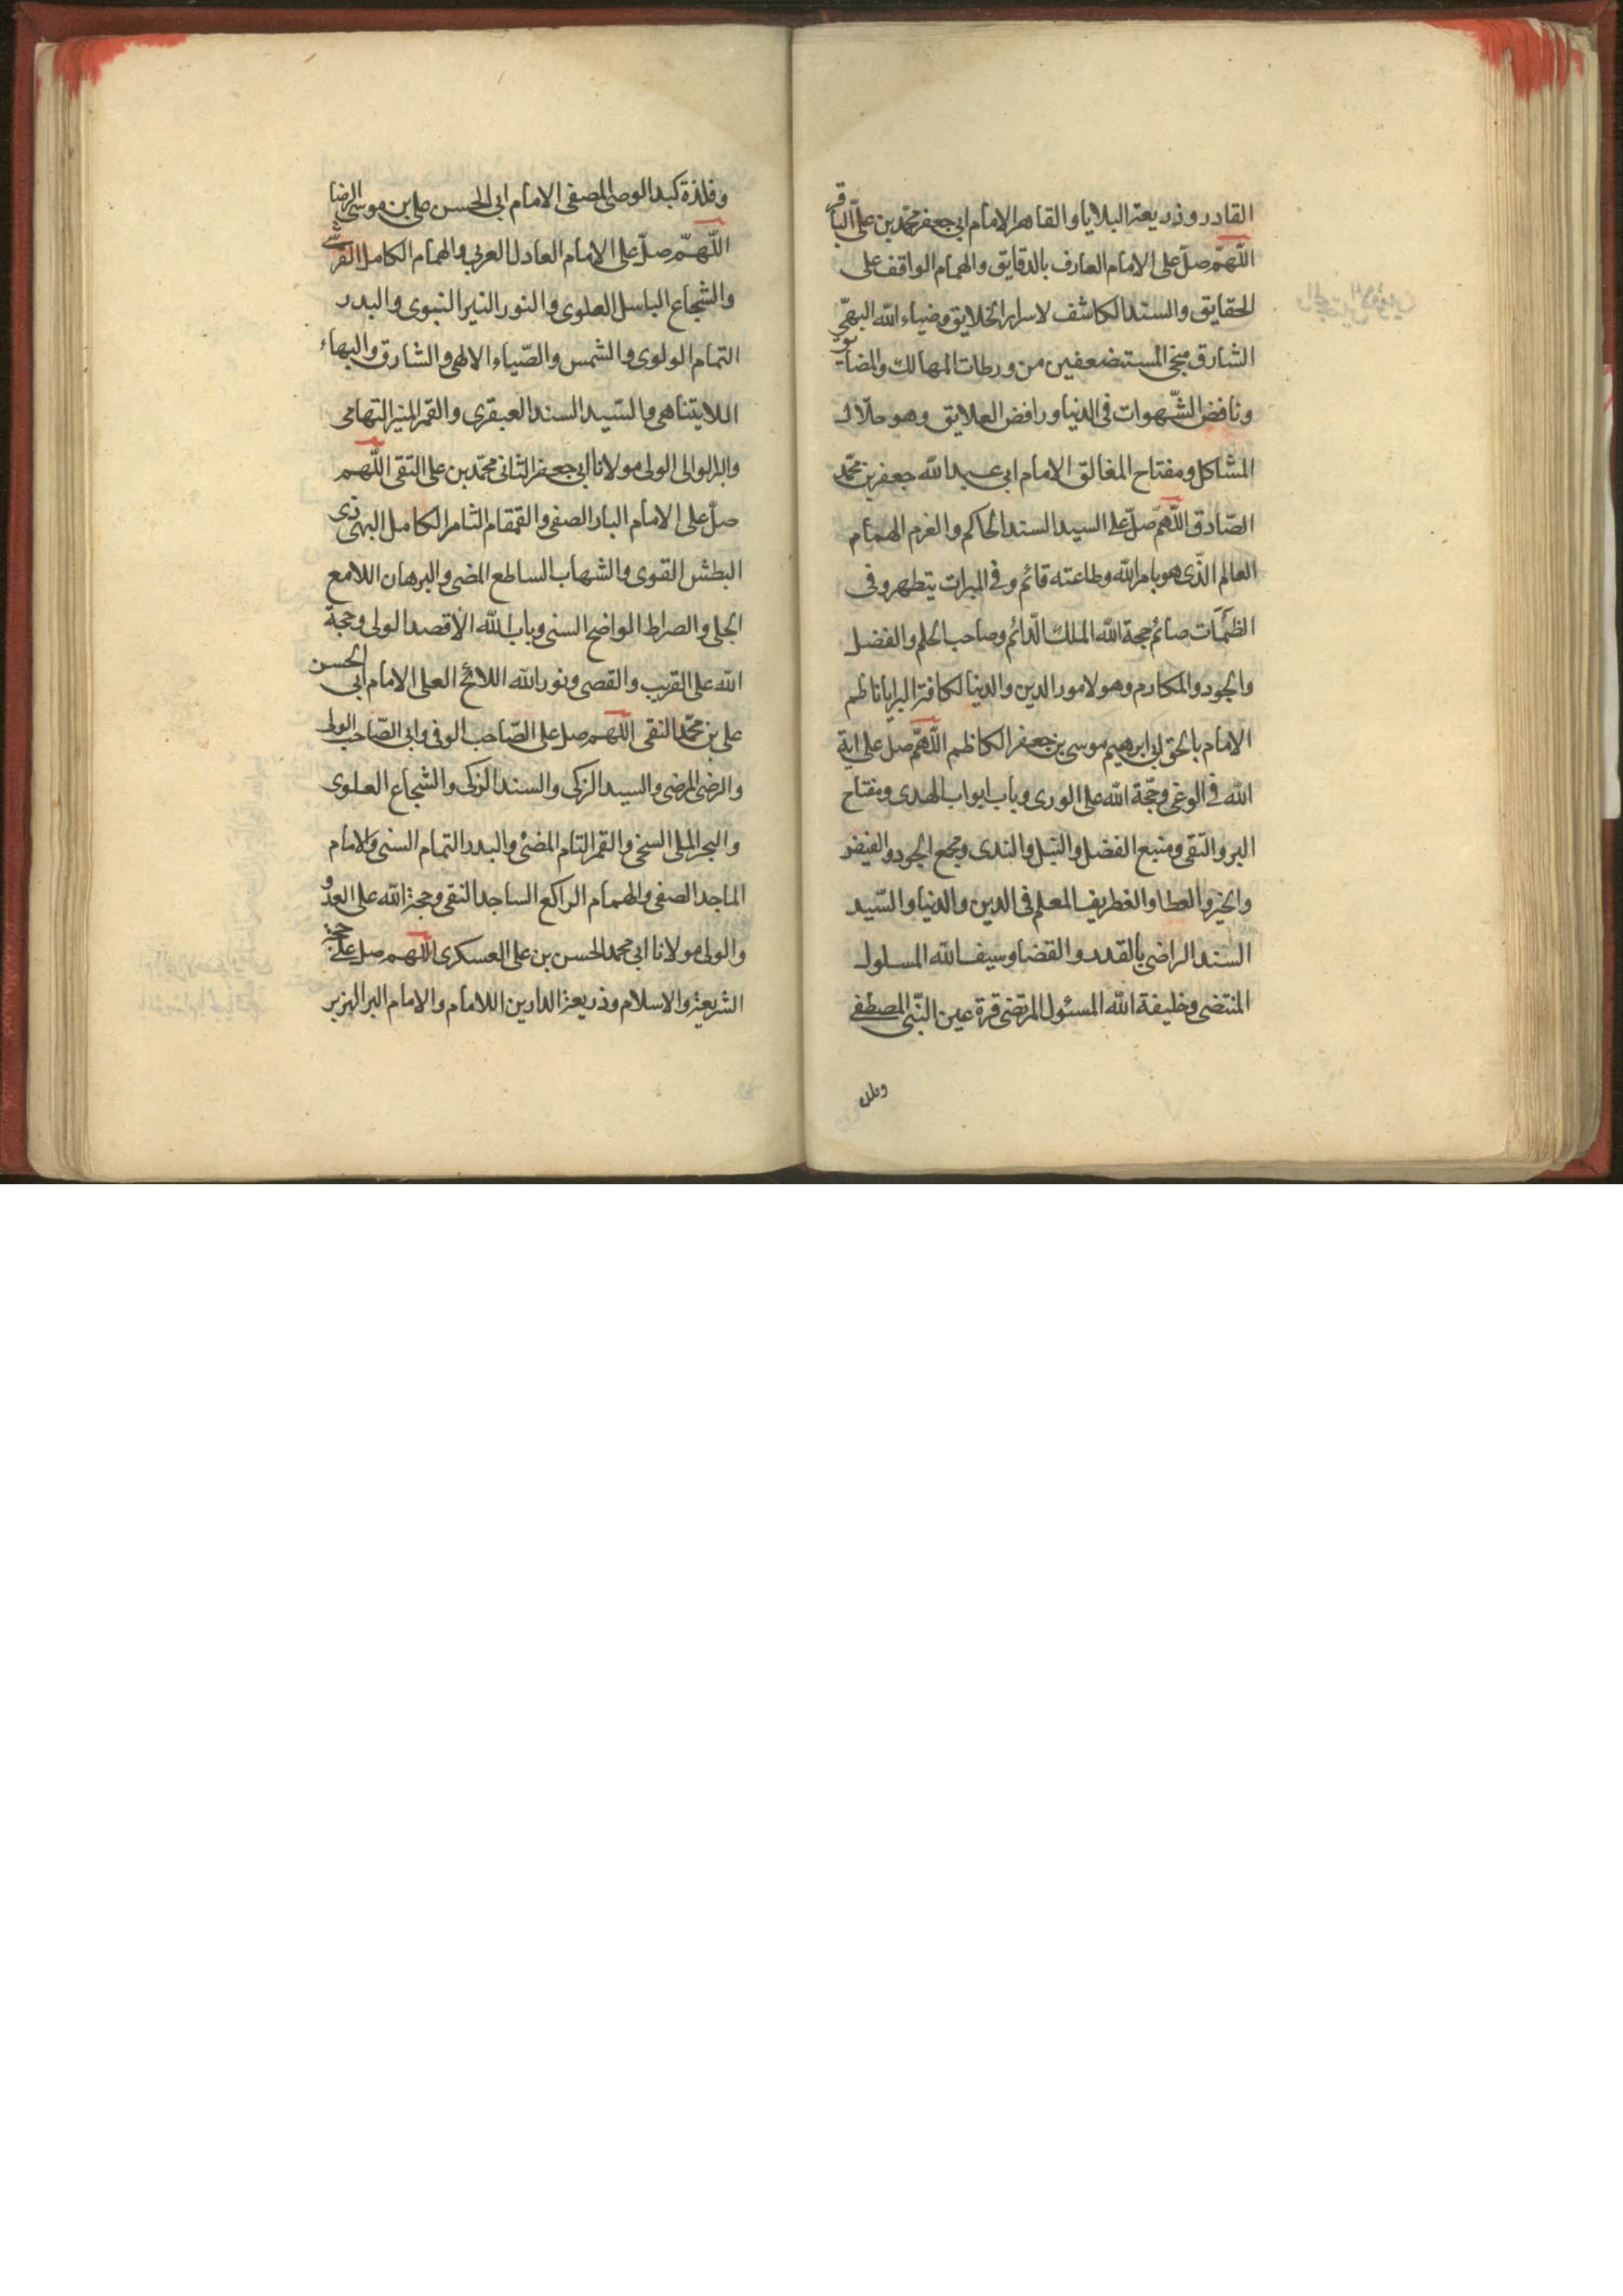 القادر وذريعة البلايا والقاهر الامام ابى جعفر محمّد بن علىّ الباقر
اللّهمّ صلّ على الامام العارف بالدقايق والهمام الواقف على
الحقايق والسند الكاشف لاسرار الخلايق وضياء الله البهىّ
الشارق منجى المستضعفين من ورطات المهالك والمضايق
ونافض الشّهوات فى الدنيا ورافض العلايق وهو حلّال
المشاكل ومفتاح المغالق الامام ابى عبد الله جعفر بن محمّد
الصّادق اللّهمّ صلّ على السيد السند الحاكم والغرم الهمام
العالم الّذى هو بامر الله وطاعته قائم وفى المبرات يتطهر وفى
صائم حجة الله الملك الدّائم وصاحب الحلم والفضل
والجود والمكارم وهو لامور الدين والدنيا لكافة البرايا ناظم
الامام بالحق ابى ابرهيم موسى بن جعفر الكاظم اللّهمّ صل على اية
الله فى الوغى وحجّة الله على الورى وباب ابواب الهدى ومفتاح
البر والتقى ومنبع الفضل والنبل والندى ومجمع الجود والفيض
والخير والعطا والغطريف المعلم فى الدين والدنيا والسّيد
السند الراضى بالقدر والقضا وسيف الله المسلول
المنتضى وخليفة الله المسئول المرتضى قرة عين النّبى المصطفى
وفلذة
وفلذة كبد الوصى المصفى الامام ابى الحسن على بن موسى الرضا
اللّهمّ صلّ على الامام العادل العربى والهمام الكامل القرشى
والشجاع الباسل العلوى والنور النير النبوى والبدر
التمام الولوى والشمس والضّياء الالهى والشارق والبهاء
اللايتناهى والسّيد السند العبقرى والقمر المنير التهامى
والوالى الولى مولانا ابى جعفر الثانى محمّد بن على التقى اللّهم
صلّ على الامام البار الصفى والقمقام الثامر الكامل البهى ذى
البطش القوى والشهاب الساطع المضى والبرهان اللامع
الجلى والصراط الواضح السنى وباب الله الأقصد الولى وحجة
الله على القريب والقصى ونور الله اللائح العلى الامام ابى الحسن
على بن محمّد النقى اللهم صل على الصّاحب الوفى وابى الصّاحب الولى
والرضى المرضى والسيد الزكى والسند الزكى والشجاع العلوى
والبحر الملى السخى والقمر التام المضئ والبدر التمام السنى والامام
الماجد الصفى والهمام الراكع الساجد النقى وحجة الله على العدو
والولى مولانا ابى محمد الحسن بن على العسكرى اللهم صل على حجة
الشريعة والاسلام وذريعة الدارين اللامام والامام البر الهزبر